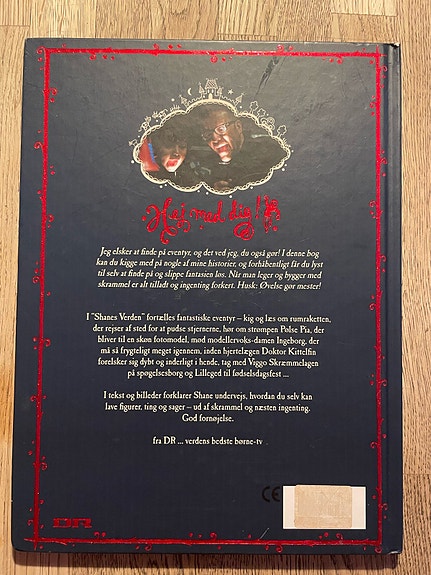 Hej med dig!
Jeg elsker at finde på eventyr, og det ved jeg, du også gør! I denne bog
kan du kigge med på nogle af mine historier, og forhåbentligt får du lyst
til selv at finde på og slippe fantasien løs. Når man leger og bygger med
skrammel er alt tilladt og ingenting forkert. Husk: Øvelse gør mester!
I "Shanes Verden" fortælles fantastiske eventyr – kig og læs om rumraketten,
der rejser af sted for at pudse stjernerne, hør om strømpen Pølse Pia, der
bliver til en skøn fotomodel, mød modellervoks-damen Ingeborg, der
må så frygteligt meget igennem, inden hjertelægen Doktor Kittelfin
forelsker sig dybt og inderligt i hende, tag med Viggo Skræmmelagen
på spøgelsesborg og Lilleged til fødselsdagsfest ...
I tekst og billeder forklarer Shane undervejs, hvordan du selv kan
lave figurer, ting og sager – ud af skrammel og næsten ingenting.
God fornøjelse.
fra DR ... verdens bedste børne-tv
CE
DR